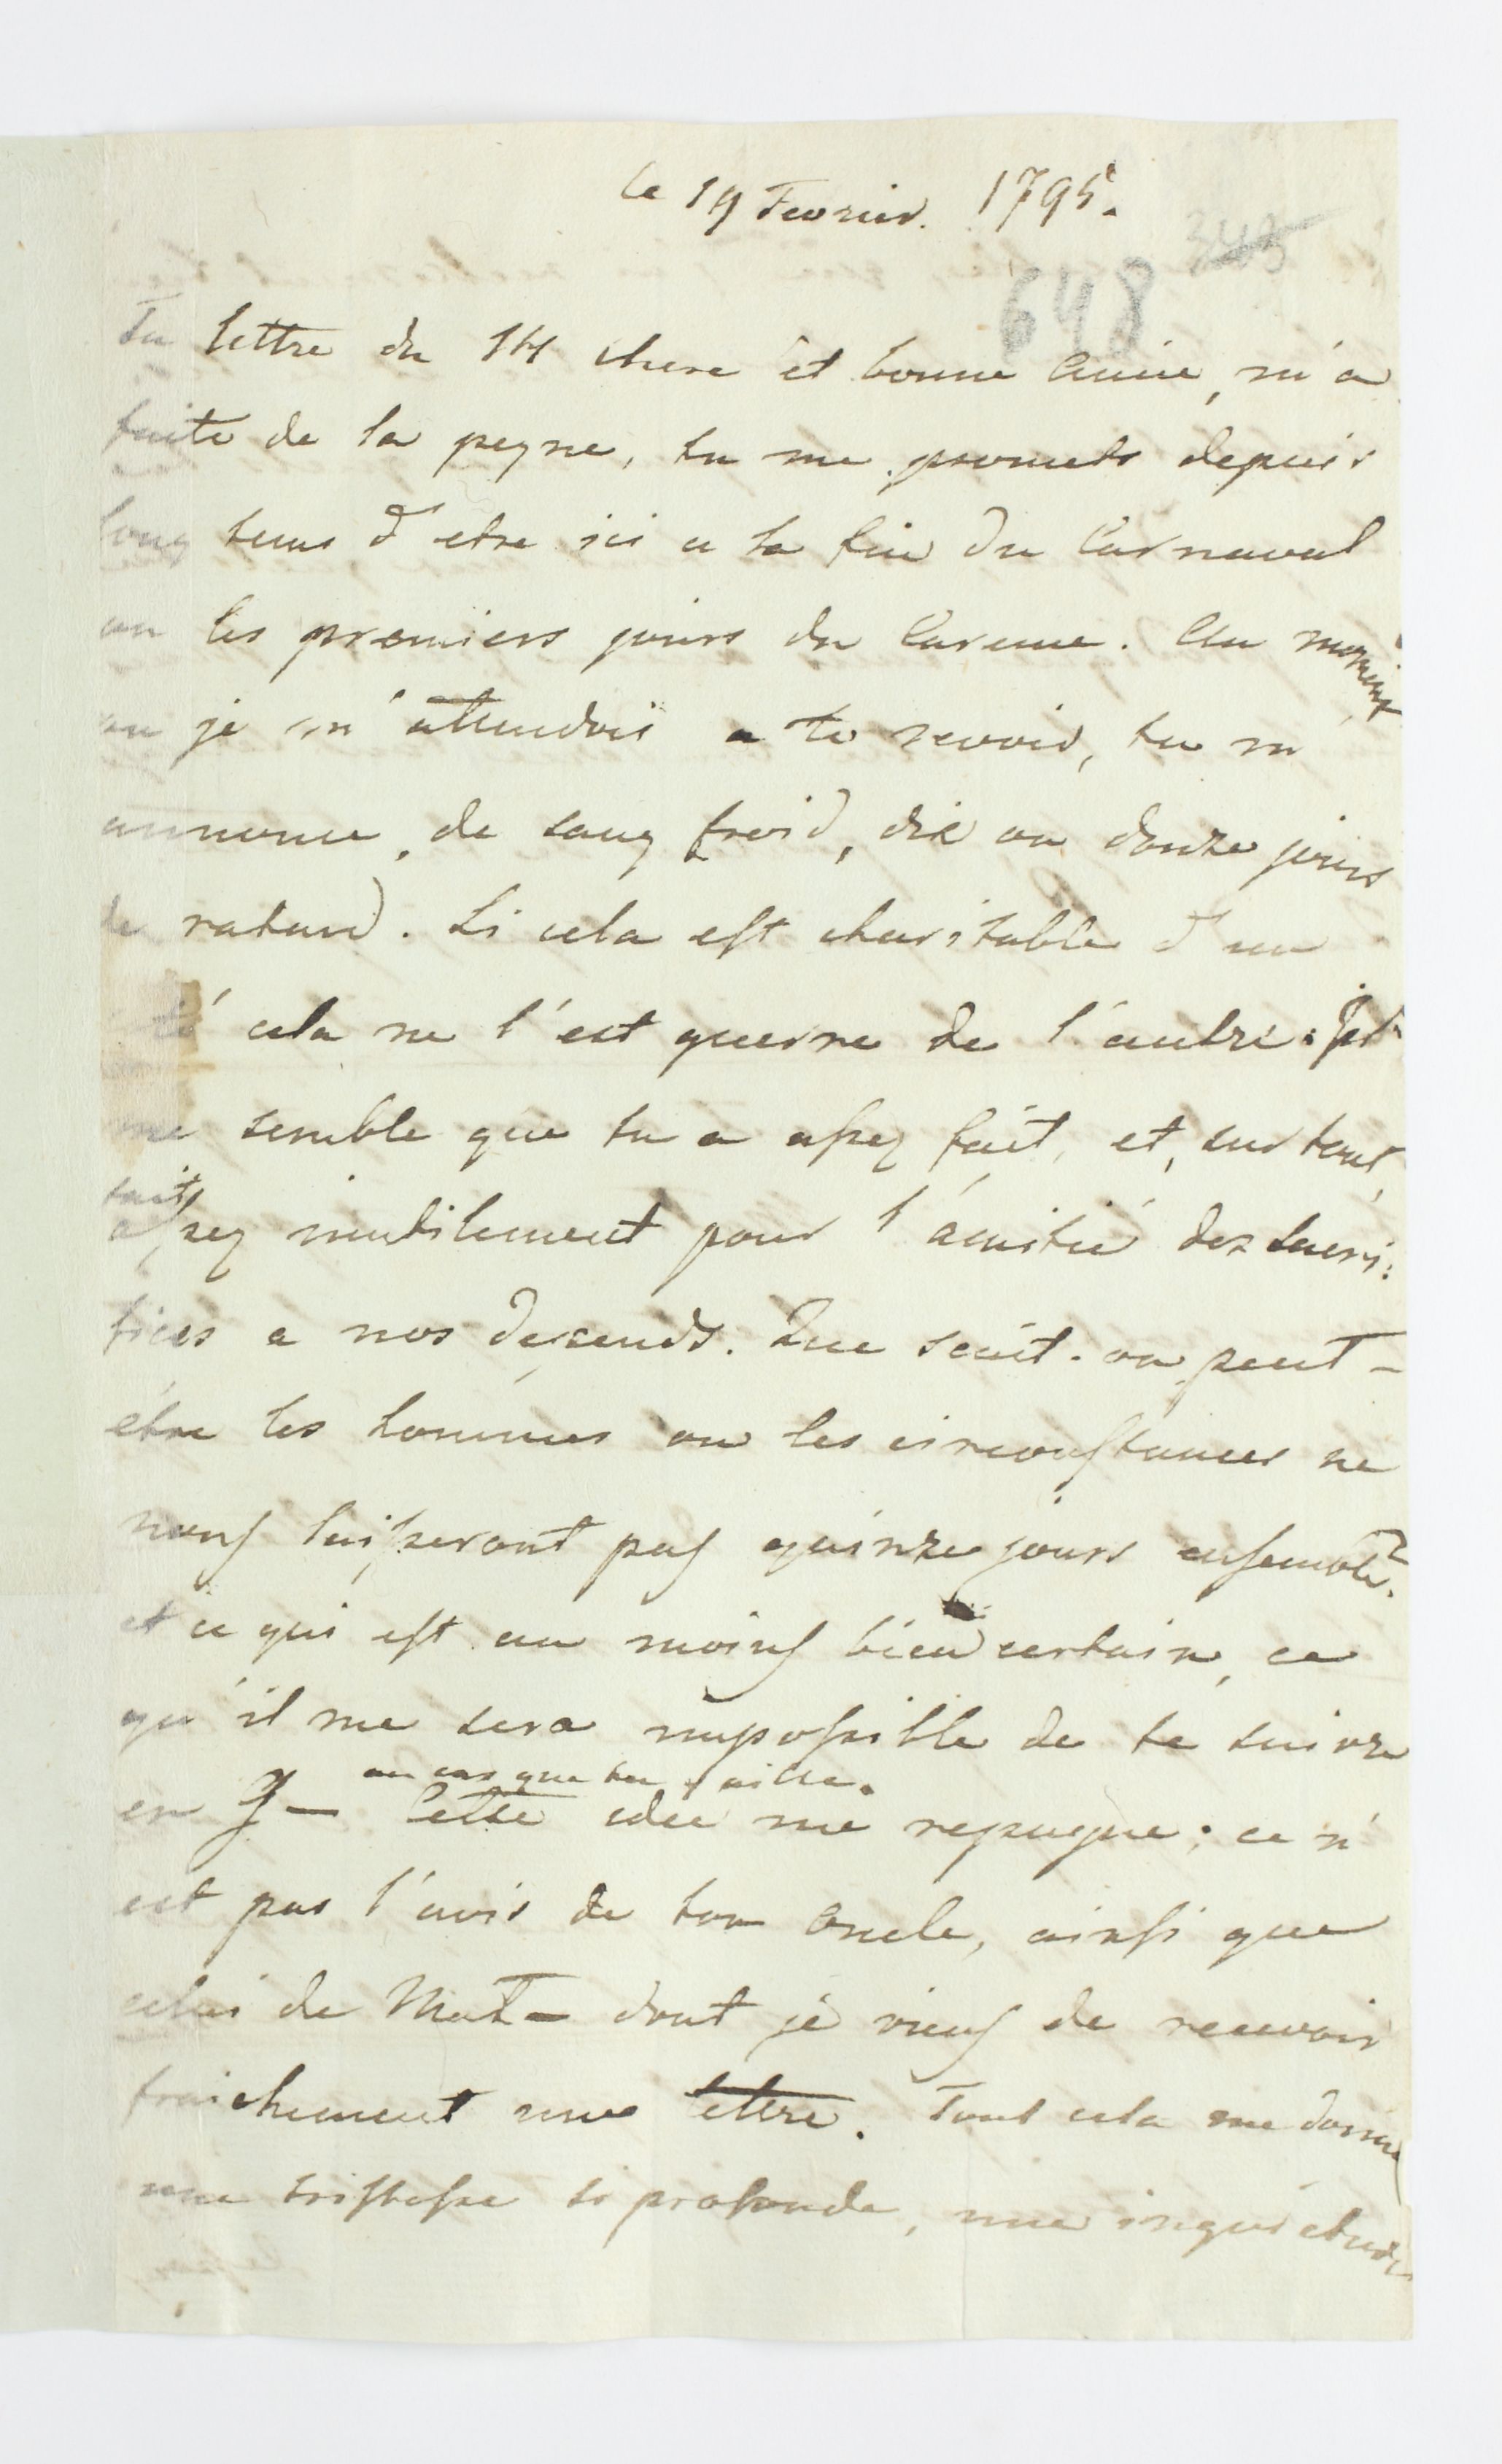 le 19 Fevrier. 1795.
343
648
Ta lettre du 14 chere et bonne Amie, m'a
faite de la peyne, tu me promets depuis
long tems d'etre ici a la fin du Carnaval
ou les premiers jours du Careme. Au moment
ou je m'attendois a te revoir, tu m'
annonce, de sang froid, dix ou douze jours
de retard. Si cela est charitable d'un
té cela ne l'est guerre de l'autre: Jl
me semble que tu a assez fait, et, sur tout,
fait
assez inutilement pour l'amitié des sacri:
fices a nos depends. Que scait-on peut-
être les hommes ou les circonstances ne
nous laisseront pas quinze jours ensemble?
et ce qui est au moins bien certain, ce
qu'il me sera impossible de te suivre
au cas que tu y aille.
en J— Cette idee me repugne; ce n'
est pas l'avis de ton Oncle, ainsi que
celui de Mat— dont je viens de recevoir
fraichement une lettre. Tout cela me donne
une tristesse si profonde, une inquietude